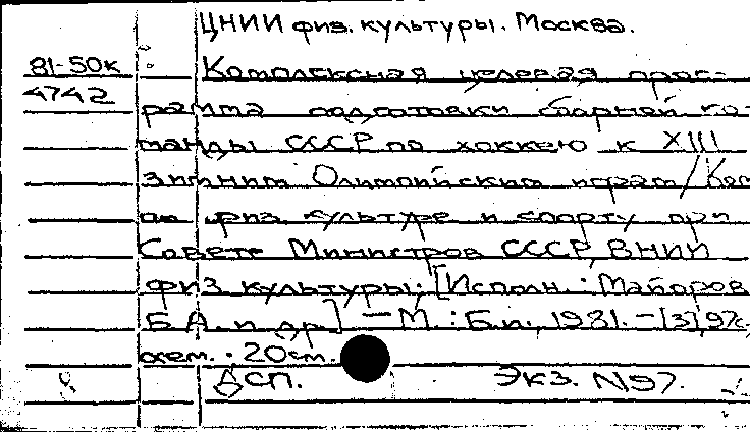 ЦНИИ физ. культуры. Москва.
81-50к Комплексная целевая прог-
4742 рамма подготовки сборной ко
манды СССР по хоккею к XIII
зимним Олимпийским играм/Ком
по физ. культуре и спорту при
Совете Министров СССР, ВНИИ
физ. культуры; [Исполн.: Майоров
Б.А. и др] — М.: Б.и., 1981. - [3], 97с,
схем. . 20см.
ДСП. Экз. N97.